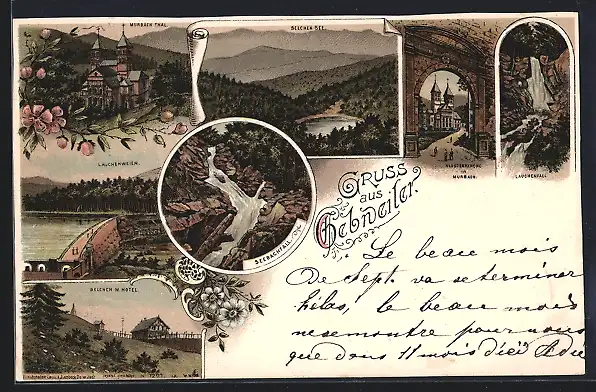 MURBACH THAL.
BELCHEN SEE.
KLOSTERKIRCHE
MURBACH.
LAUCHENFALL
LAUCHENWEIER.
SEEBACHFALL
BELCHEN M. HOTEL.
Gruss
aus
Gebweiler.
Le beau mois
de Sept. va se terminer
hélas, le beau mois
ne se montre pour nous
que dans 11 mois d'ici